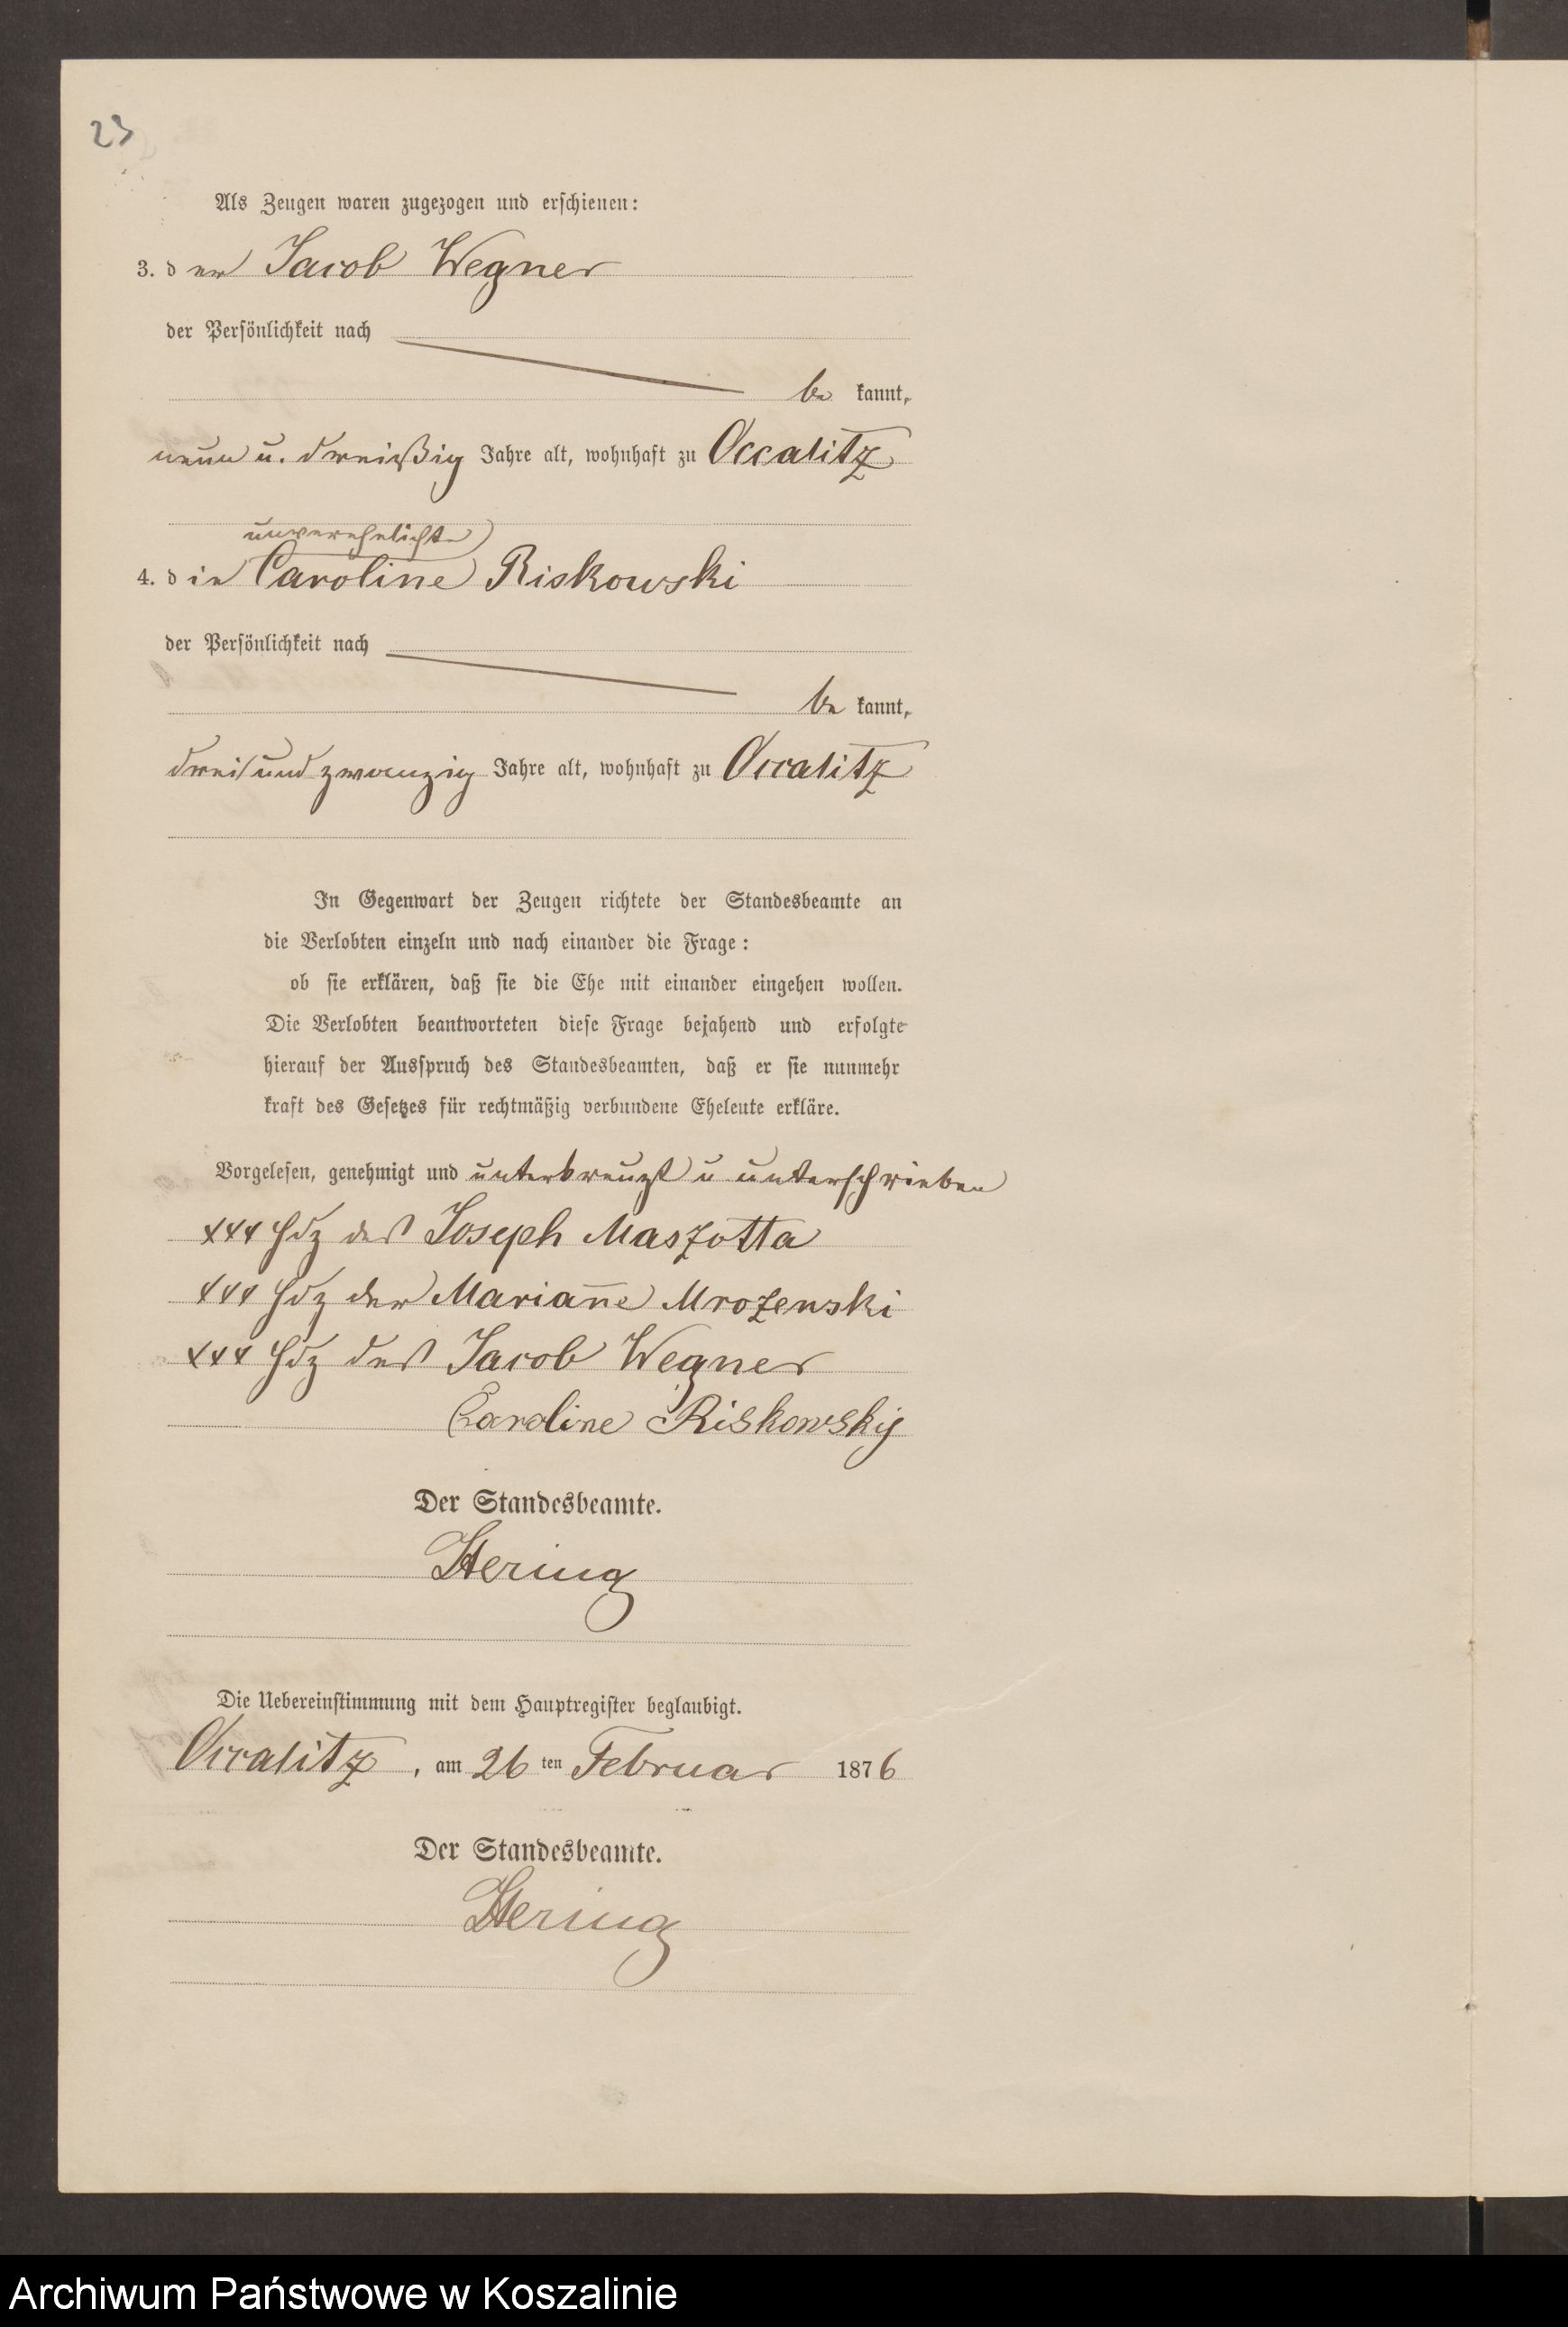 23
Als Zeugen waren zugezogen und erschienen:
3. der Jacob Wegner
der Persönlichkeit nach
be kannt,
neun u. dreißig Jahre alt, wohnhaft zu Occalitz
unverehelichte
4. die Caroline Riskowski
der Persönlichkeit nach
be kannt,
drei und zwanzig Jahre alt, wohnhaft zu Occalitz
In Gegenwart der Zeugen richtete der Standesbeamte an
die Verlobten einzeln und nach einander die Frage:
ob sie erklären, daß sie die Ehe mit einander eingehen wollen.
Die Verlobten beantworteten diese Frage bejahend und erfolgte
hierauf der Ausspruch des Standesbeamten, daß er sie nunmehr
kraft des Gesetzes für rechtmäßig verbundene Eheleute erkläre.
Vorgelesen, genehmigt und unterkreuzt u unterschrieben
xxx Hdz des Joseph Maszotta
xxx Hdz der Marian̄e Mrozenski
xxx Hdz des Jacob Wegner
Caroline Riskowskij
Der Standesbeamte.
Hering
Die Uebereinstimmung mit dem Hauptregister beglaubigt.
Occalitz, am 26 ten Februar 1876
Der Standesbeamte.
Hering
Archiwum Państwowe w Koszalinie